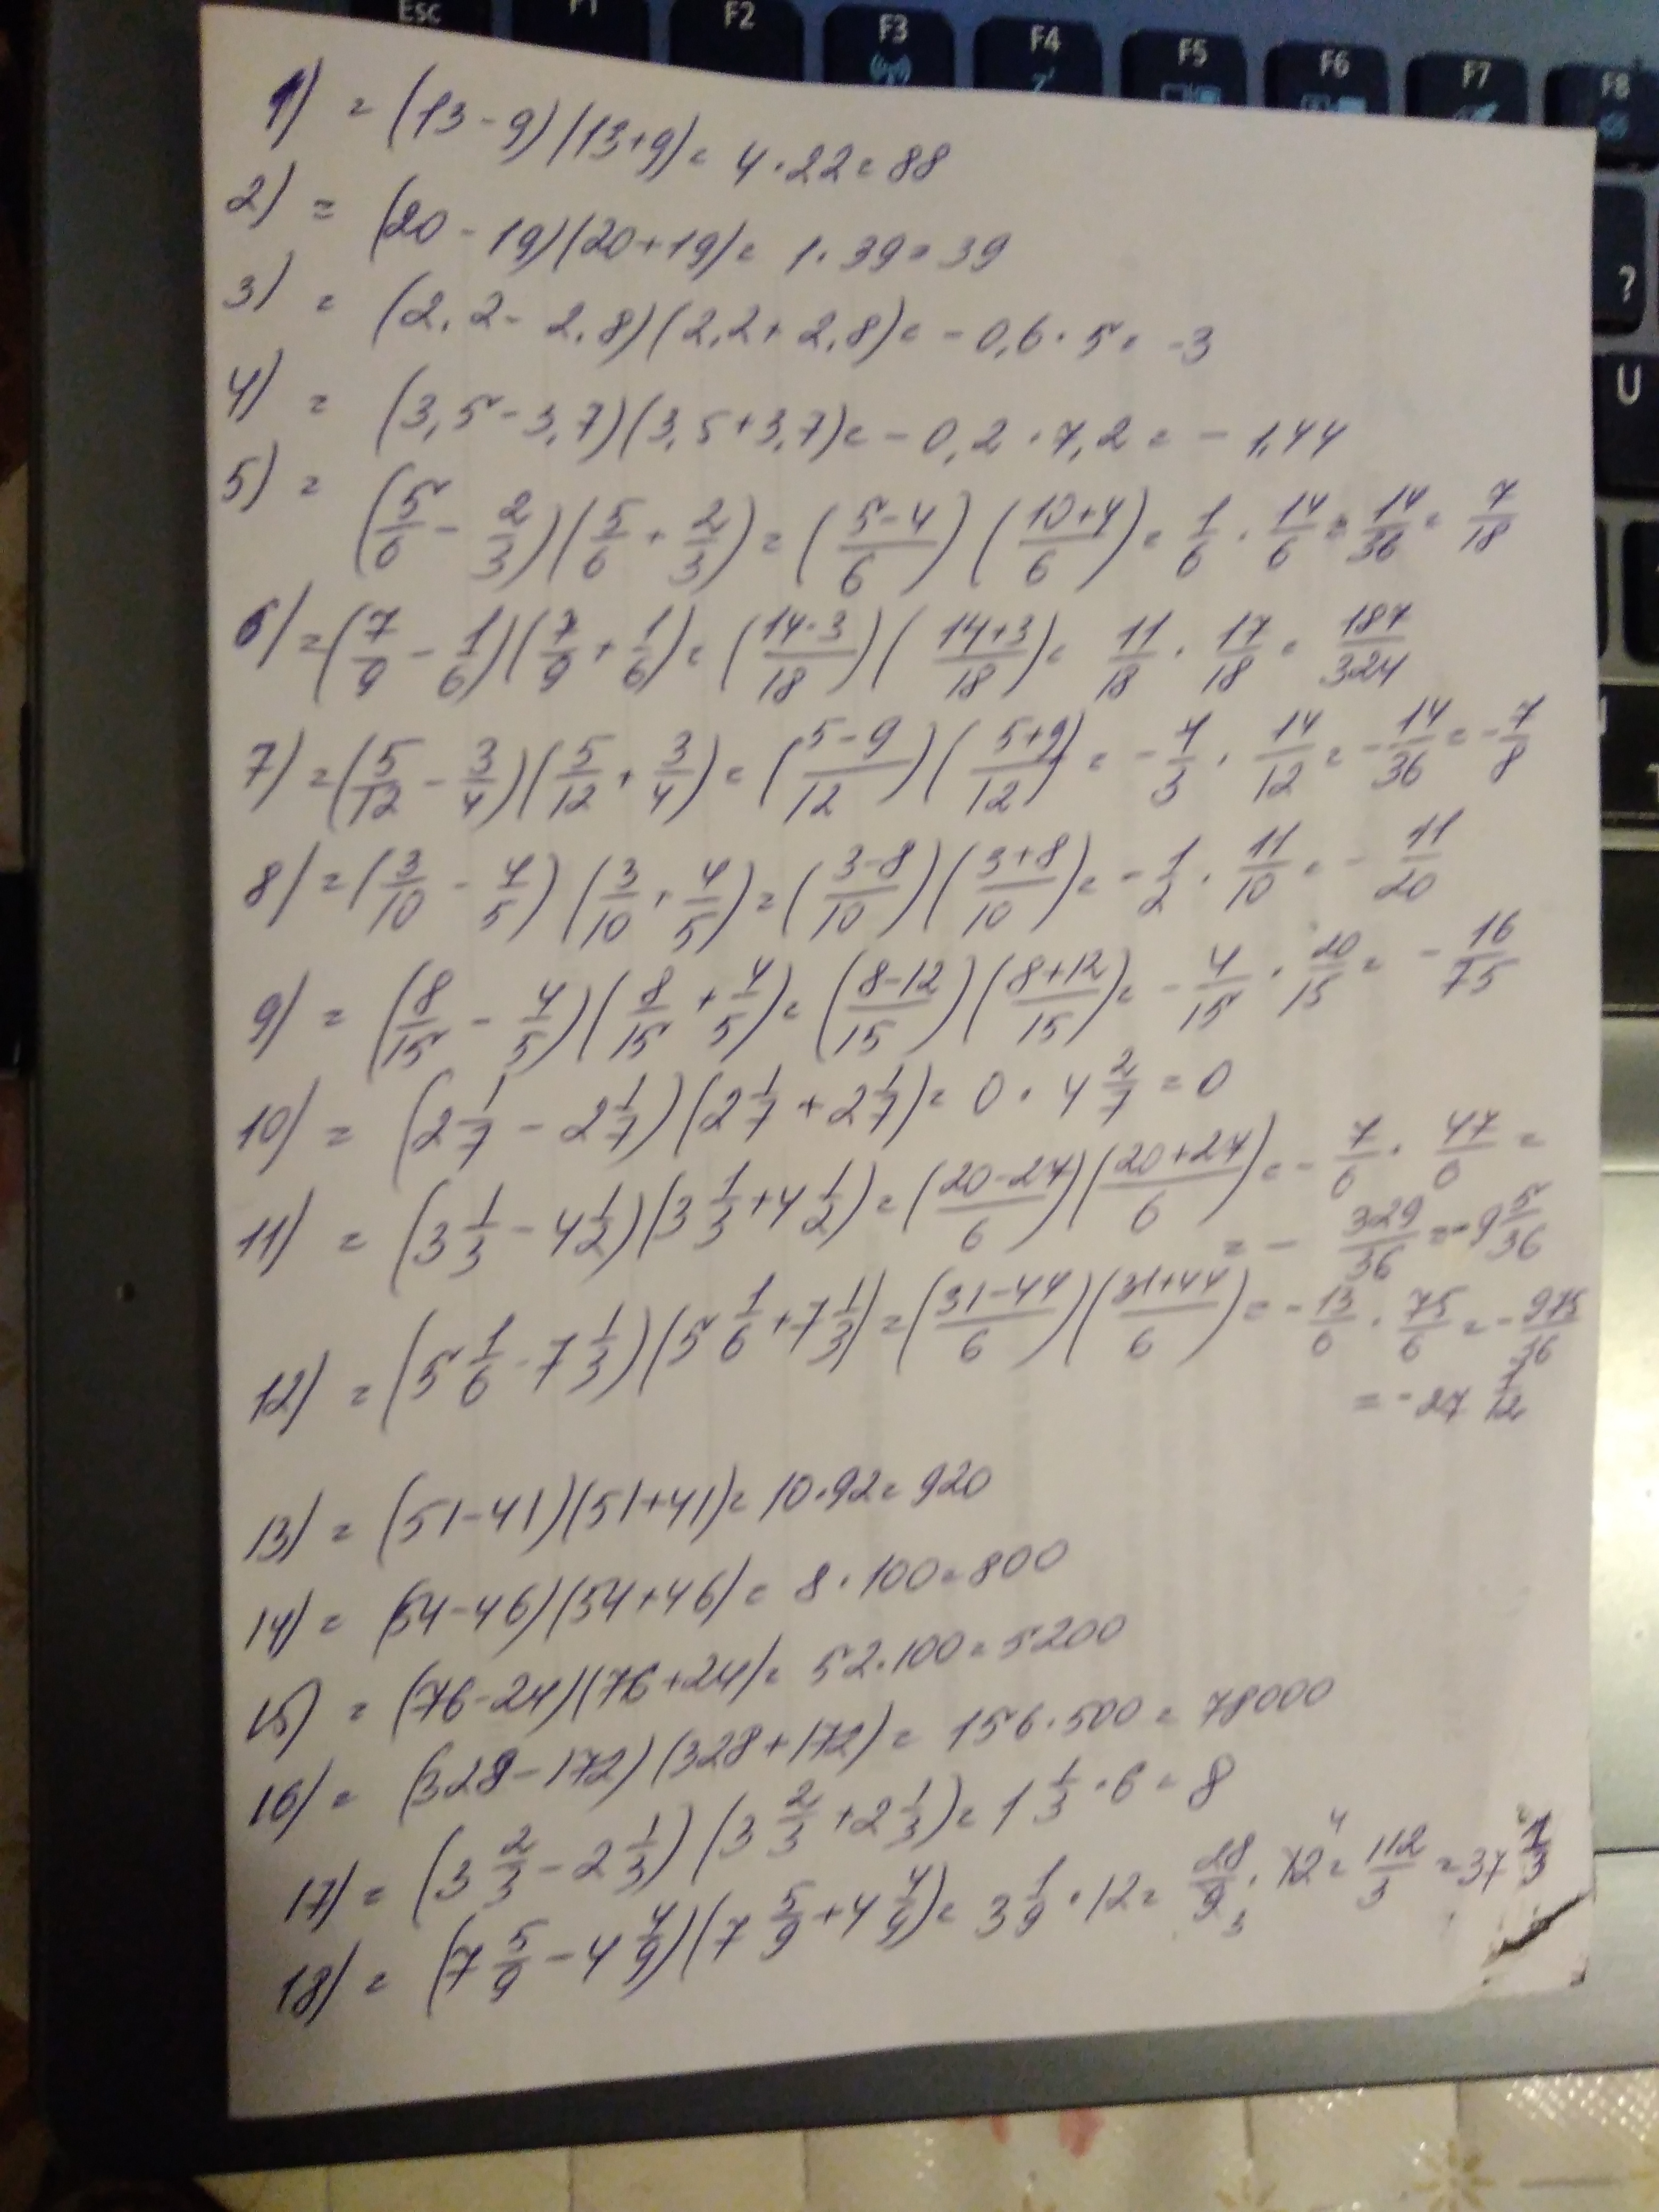 Esc F1 F2 F3 F4 F5 F6 F7 F8
?
U
1) = (13-9)(13+9)= 4·22=88
2) = (20-19)(20+19)= 1·39=39
3) = (2,2-2,8)(2,2+2,8)= -0,6·5= -3
4) = (3,5-3,7)(3,5+3,7)= -0,2·7,2= -1,44
5) = (5/6 - 2/3)(5/6 + 2/3) = ((5-4)/6)((10+4)/6) = 1/6 · 14/6 = 14/36 = 7/18
6) = (7/9 - 1/6)(7/9 + 1/6) = ((14·3)/18)((14+3)/18) = 11/18 · 17/18 = 187/324
7) = (5/12 - 3/4)(5/12 + 3/4) = ((5-9)/12)((5+9)/12) = -1/3 · 14/12 = -14/36 = -7/8
8) = (3/10 - 4/5)(3/10 + 4/5) = ((3-8)/10)((3+8)/10) = -1/2 · 11/10 = -11/20
9) = (8/15 - 4/5)(8/15 + 4/5) = ((8-12)/15)((8+12)/15) = -4/15 · 20/15 = -16/75
10) = (2 1/7 - 2 1/7)(2 1/7 + 2 1/7) = 0 · 4 2/7 = 0
11) = (3 1/3 - 4 1/2)(3 1/3 + 4 1/2) = ((20-27)/6)((20+27)/6) = -7/6 · 47/6 =
= -329/36 = -9 5/36
12) = (5 1/6 - 7 1/3)(5 1/6 + 7 1/3) = ((31-44)/6)((31+44)/6) = -13/6 · 75/6 = -975/36
= -27 1/12
13) = (51-41)(51+41)= 10·92= 920
14) = (54-46)(54+46)= 8·100=800
15) = (76-24)(76+24)= 52·100=5200
16) = (328-172)(328+172)= 156·500 = 78000
17) = (3 2/3 - 2 1/3)(3 2/3 + 2 1/3) = 1 1/3 · 6 = 8
18) = (7 5/9 - 4 4/9)(7 5/9 + 4 4/9) = 3 1/9 · 12 = 28/9 3 · 12 4 = 112/3 = 37 1/3